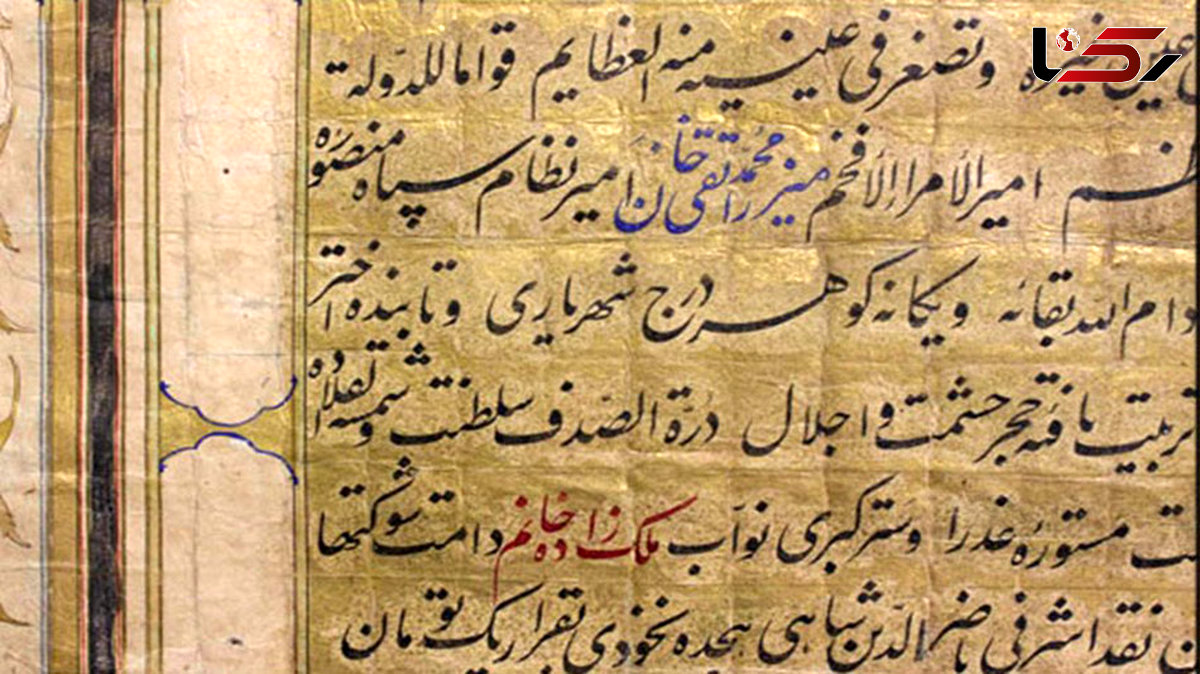 رکنا
وتصغر فی عینیه منه العظایم قواما للدولة
امیر الأمراء الأفخم میرزا محمد تقی خان امیر نظام سپاه منصوره
دام الله بقائه و یکانه کوهر درج شهریاری و تابنده اختر
تربیت یافته حجر حشمت و اجلال درة الصدف سلطنت و شمسة القلاده
مستوره عذرا و ستر کبری نواب ملک زاده خانم دامت شوکتها
نقد اشرفی ناصر الدین شاهی هجده نخودی بقرار یک تومان